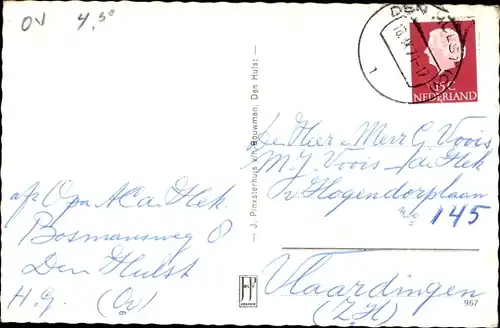 OV 4,50
DEN HULST
15 C
NEDERLAND
J. Pinxsterhuis v/h Bouwman, Den Hulst
De Heer & Mevr G Voois
M. J. Voois – de Hek
v. Hogendorplaan
no 145
Vlaardingen
(Z.H)
afz Opa A C de Hek.
Bosmansweg 8
Den Hulst
H.G. (Ov)
JP
967